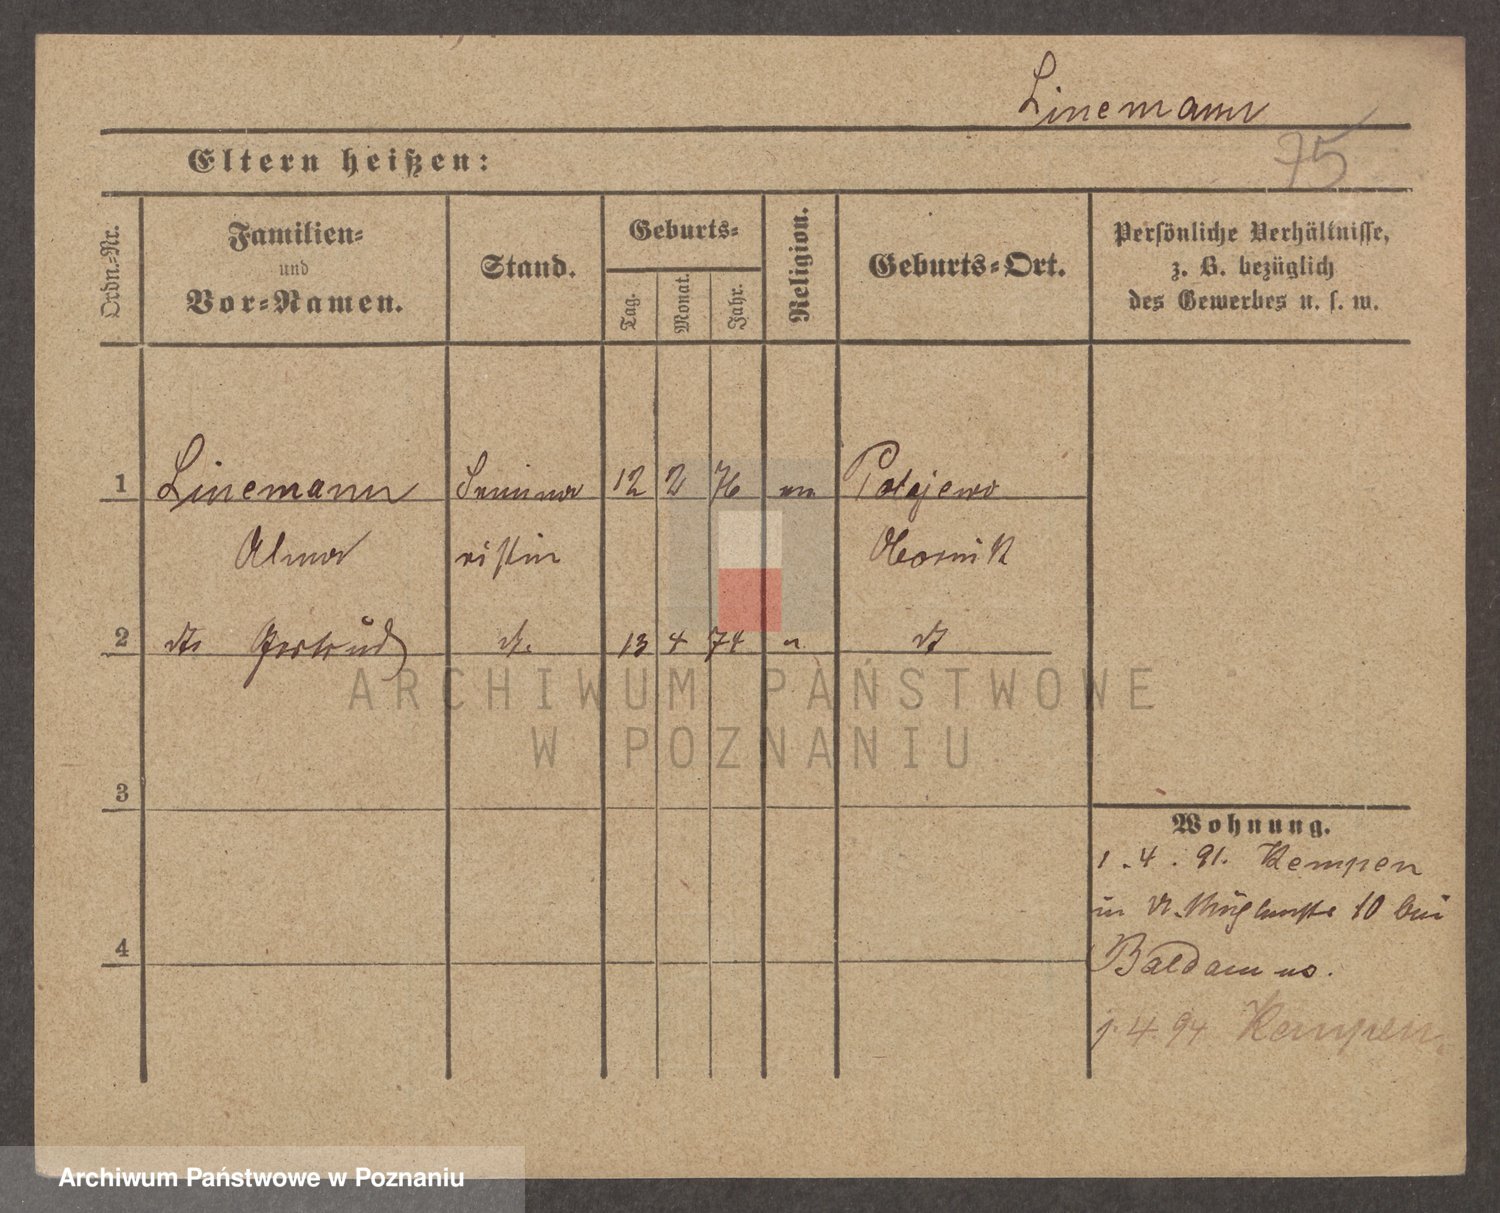 Linemann
75
Eltern heißen:
Ordn.-Nr.
Familien-
und
Vor-Namen.
Stand.
Geburts-
Tag.
Monat.
Jahr.
Religion.
Geburts-Ort.
Persönliche Verhältnisse,
z. B. bezüglich
des Gewerbes u. s. w.
1 Linemann Semina 12 2 76 ev Polajewo
Alma ristin Obornik
2 dto Gertrud dt. 13 4 74 " dt
ARCHIWUM PAŃSTWOWE
W POZNANIU
3
Wohnung.
1.4.91. Kempen
in 10 bei
4
Baldamus.
1.4.94 Kempen.
Archiwum Państwowe w Poznaniu